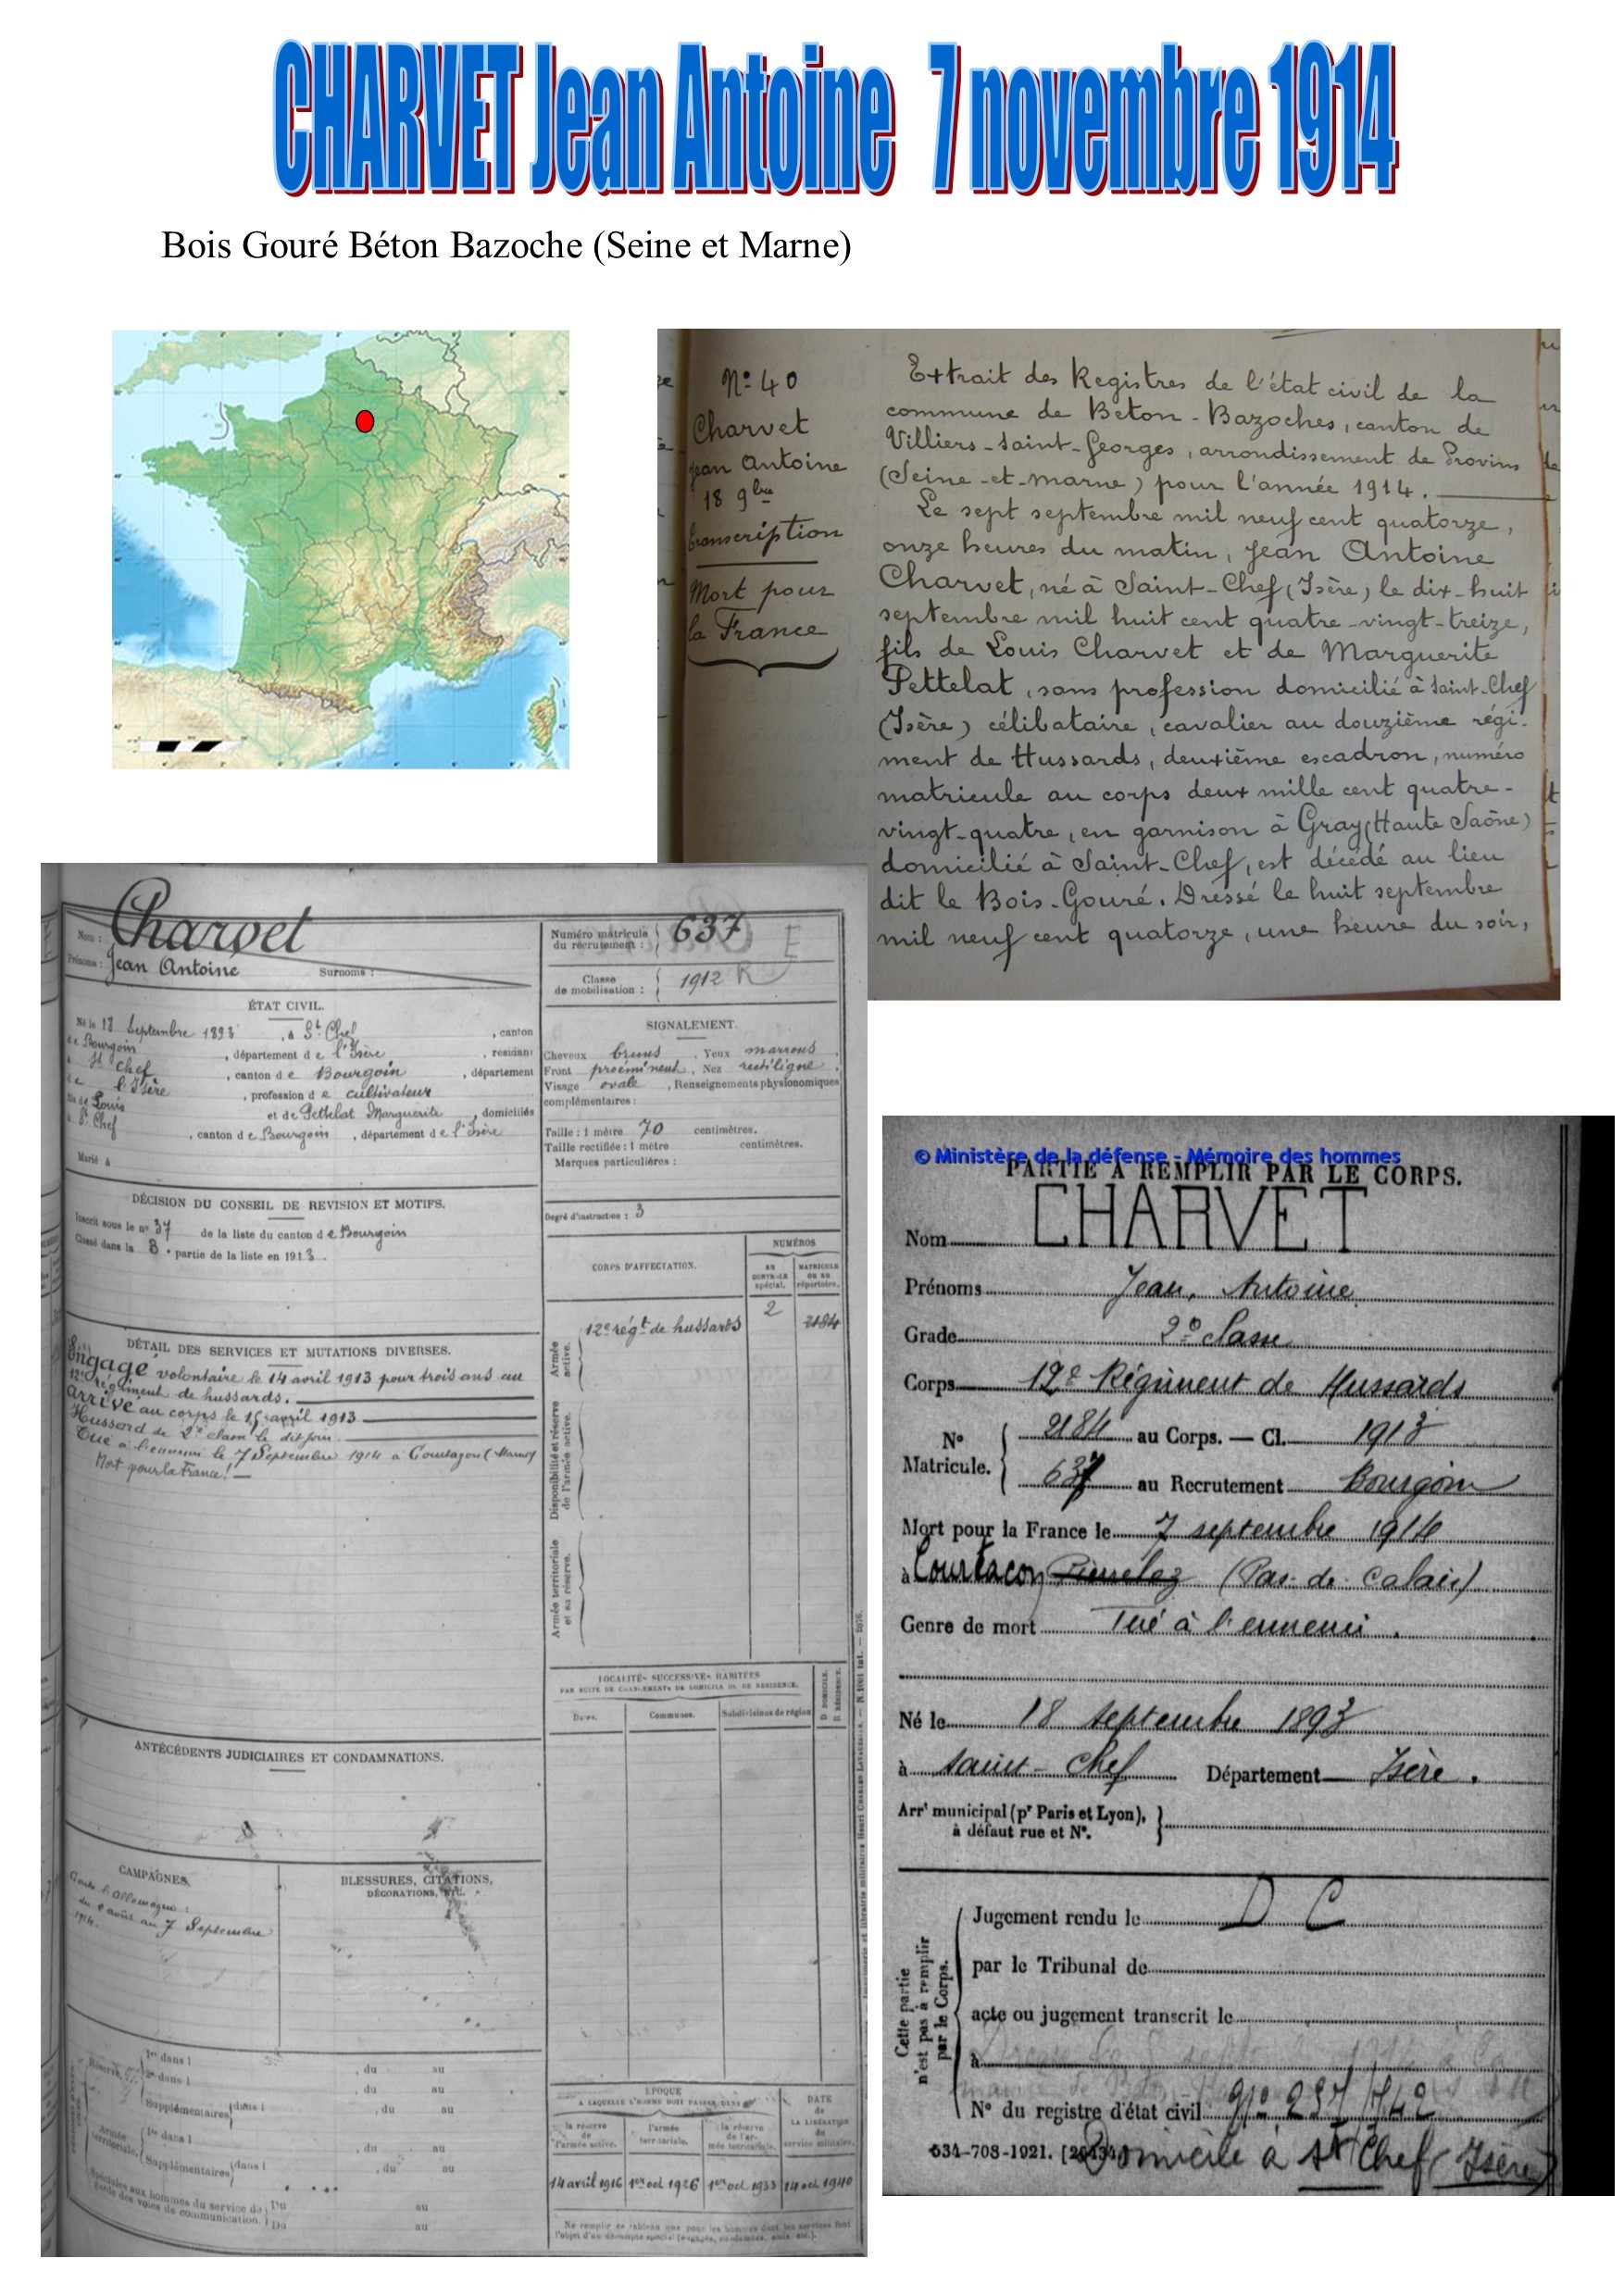 CHARVET Jean Antoine 7 novembre 1914
Bois Gouré Béton Bazoche (Seine et Marne)
N° 40
Charvet
Jean Antoine
18 9bre
transcription
Mort pour
la France
Extrait des Registres de l'état civil de la
commune de Beton-Bazoches, canton de
Villiers-Saint-Georges, arrondissement de Provins
(Seine-et-Marne) pour l'année 1914.
Le sept septembre mil neuf cent quatorze,
onze heures du matin, Jean Antoine
Charvet, né à Saint-Chef (Isère) le dix-huit
septembre mil huit cent quatre-vingt-treize,
fils de Louis Charvet et de Marguerite
Pettelat, sans profession domicilié à Saint-Chef
(Isère) célibataire, cavalier au douzième régi-
ment de Hussards, deuxième escadron, numéro
matricule au corps deux mille cent quatre-
vingt-quatre, en garnison à Gray (Haute Saône)
domicilié à Saint-Chef, est décédé au lieu
dit le Bois-Gouré. Dressé le huit septembre
mil neuf cent quatorze, une heure du soir,
Nom : Charvet
Prénoms : Jean Antoine Surnoms :
ÉTAT CIVIL.
Né le 18 Septembre 1893, à St Chef, canton
de Bourgoin, département de l'Isère, résidant
à St Chef, canton de Bourgoin, département
de l'Isère, profession de cultivateur
fils de Louis et de Pettelat Marguerite, domiciliés
à St Chef, canton de Bourgoin, département de l'Isère
Marié à
DÉCISION DU CONSEIL DE REVISION ET MOTIFS.
Inscrit sous le n° 37 de la liste du canton de Bourgoin
Classé dans la 8e partie de la liste en 1913.
DÉTAIL DES SERVICES ET MUTATIONS DIVERSES.
Engagé volontaire le 14 avril 1913 pour trois ans au
12e régiment de hussards.
Arrivé au corps le 15 avril 1913
Hussard de 2e classe le dit jour.
Tué à l'ennemi le 7 Septembre 1914 à Courtagon (Marne)
Mort pour la France !
ANTÉCÉDENTS JUDICIAIRES ET CONDAMNATIONS.
CAMPAGNES.
Contre l'Allemagne :
du août au 7 Septembre
1914.
BLESSURES, CITATIONS,
DÉCORATIONS, ETC.
Réserve.
1re dans l , du au
2e dans l , du au
Supplémentaires dans l , du au
Armée territoriale.
1re dans l , du au
Supplémentaires dans l , du au
Spéciales aux hommes du service de garde des voies de communication.
Du au
Du au
Numéro matricule du recrutement : 637 E
Classe de mobilisation : 1912 R
SIGNALEMENT.
Cheveux bruns, Yeux marrons,
Front proéminent, Nez rectiligne,
Visage ovale, Renseignements physionomiques
complémentaires :
Taille : 1 mètre 70 centimètres.
Taille rectifiée : 1 mètre centimètres.
Marques particulières :
Degré d'instruction : 3
CORPS D'AFFECTATION.
NUMÉROS
AU CONTRÔLE spécial.
MATRICULE OU AU répertoire.
Armée active.
12e régt de hussards 2 2184
Disponibilité et réserve de l'armée active.
Armée territoriale et sa réserve.
LOCALITÉS SUCCESSIVES HABITÉES
PAR SUITE DE CHANGEMENTS DE DOMICILE OU DE RÉSIDENCE.
Dates. Communes. Subdivisions de région D. DOMICILE. R. RÉSIDENCE.
ÉPOQUE
A LAQUELLE L'HOMME DOIT PASSER DANS
la réserve de l'armée active.
l'armée territoriale.
la réserve de l'armée territoriale.
DATE de LA LIBÉRATION du service militaire.
14 avril 1916 1er oct 1926 1er oct 1933 14 oct 1940
© Ministère de la défense - Mémoire des hommes
PARTIE À REMPLIR PAR LE CORPS.
Nom CHARVET
Prénoms Jean, Antoine
Grade 2e classe
Corps 12e Régiment de Hussards
N° Matricule.
2184 au Corps. — Cl. 1913
637 au Recrutement Bourgoin
Mort pour la France le 7 septembre 1914
à Courtacon (Pas-de-Calais)
Genre de mort Tué à l'ennemi.
Né le 18 septembre 1893
à Saint-Chef Département Isère.
Arrt municipal (pr Paris et Lyon),
à défaut rue et N°.
Cette partie n'est pas à remplir par le Corps.
Jugement rendu le D C
par le Tribunal de
acte ou jugement transcrit le
à
N° du registre d'état civil
534-708-1921.
Domicile à St Chef (Isère)